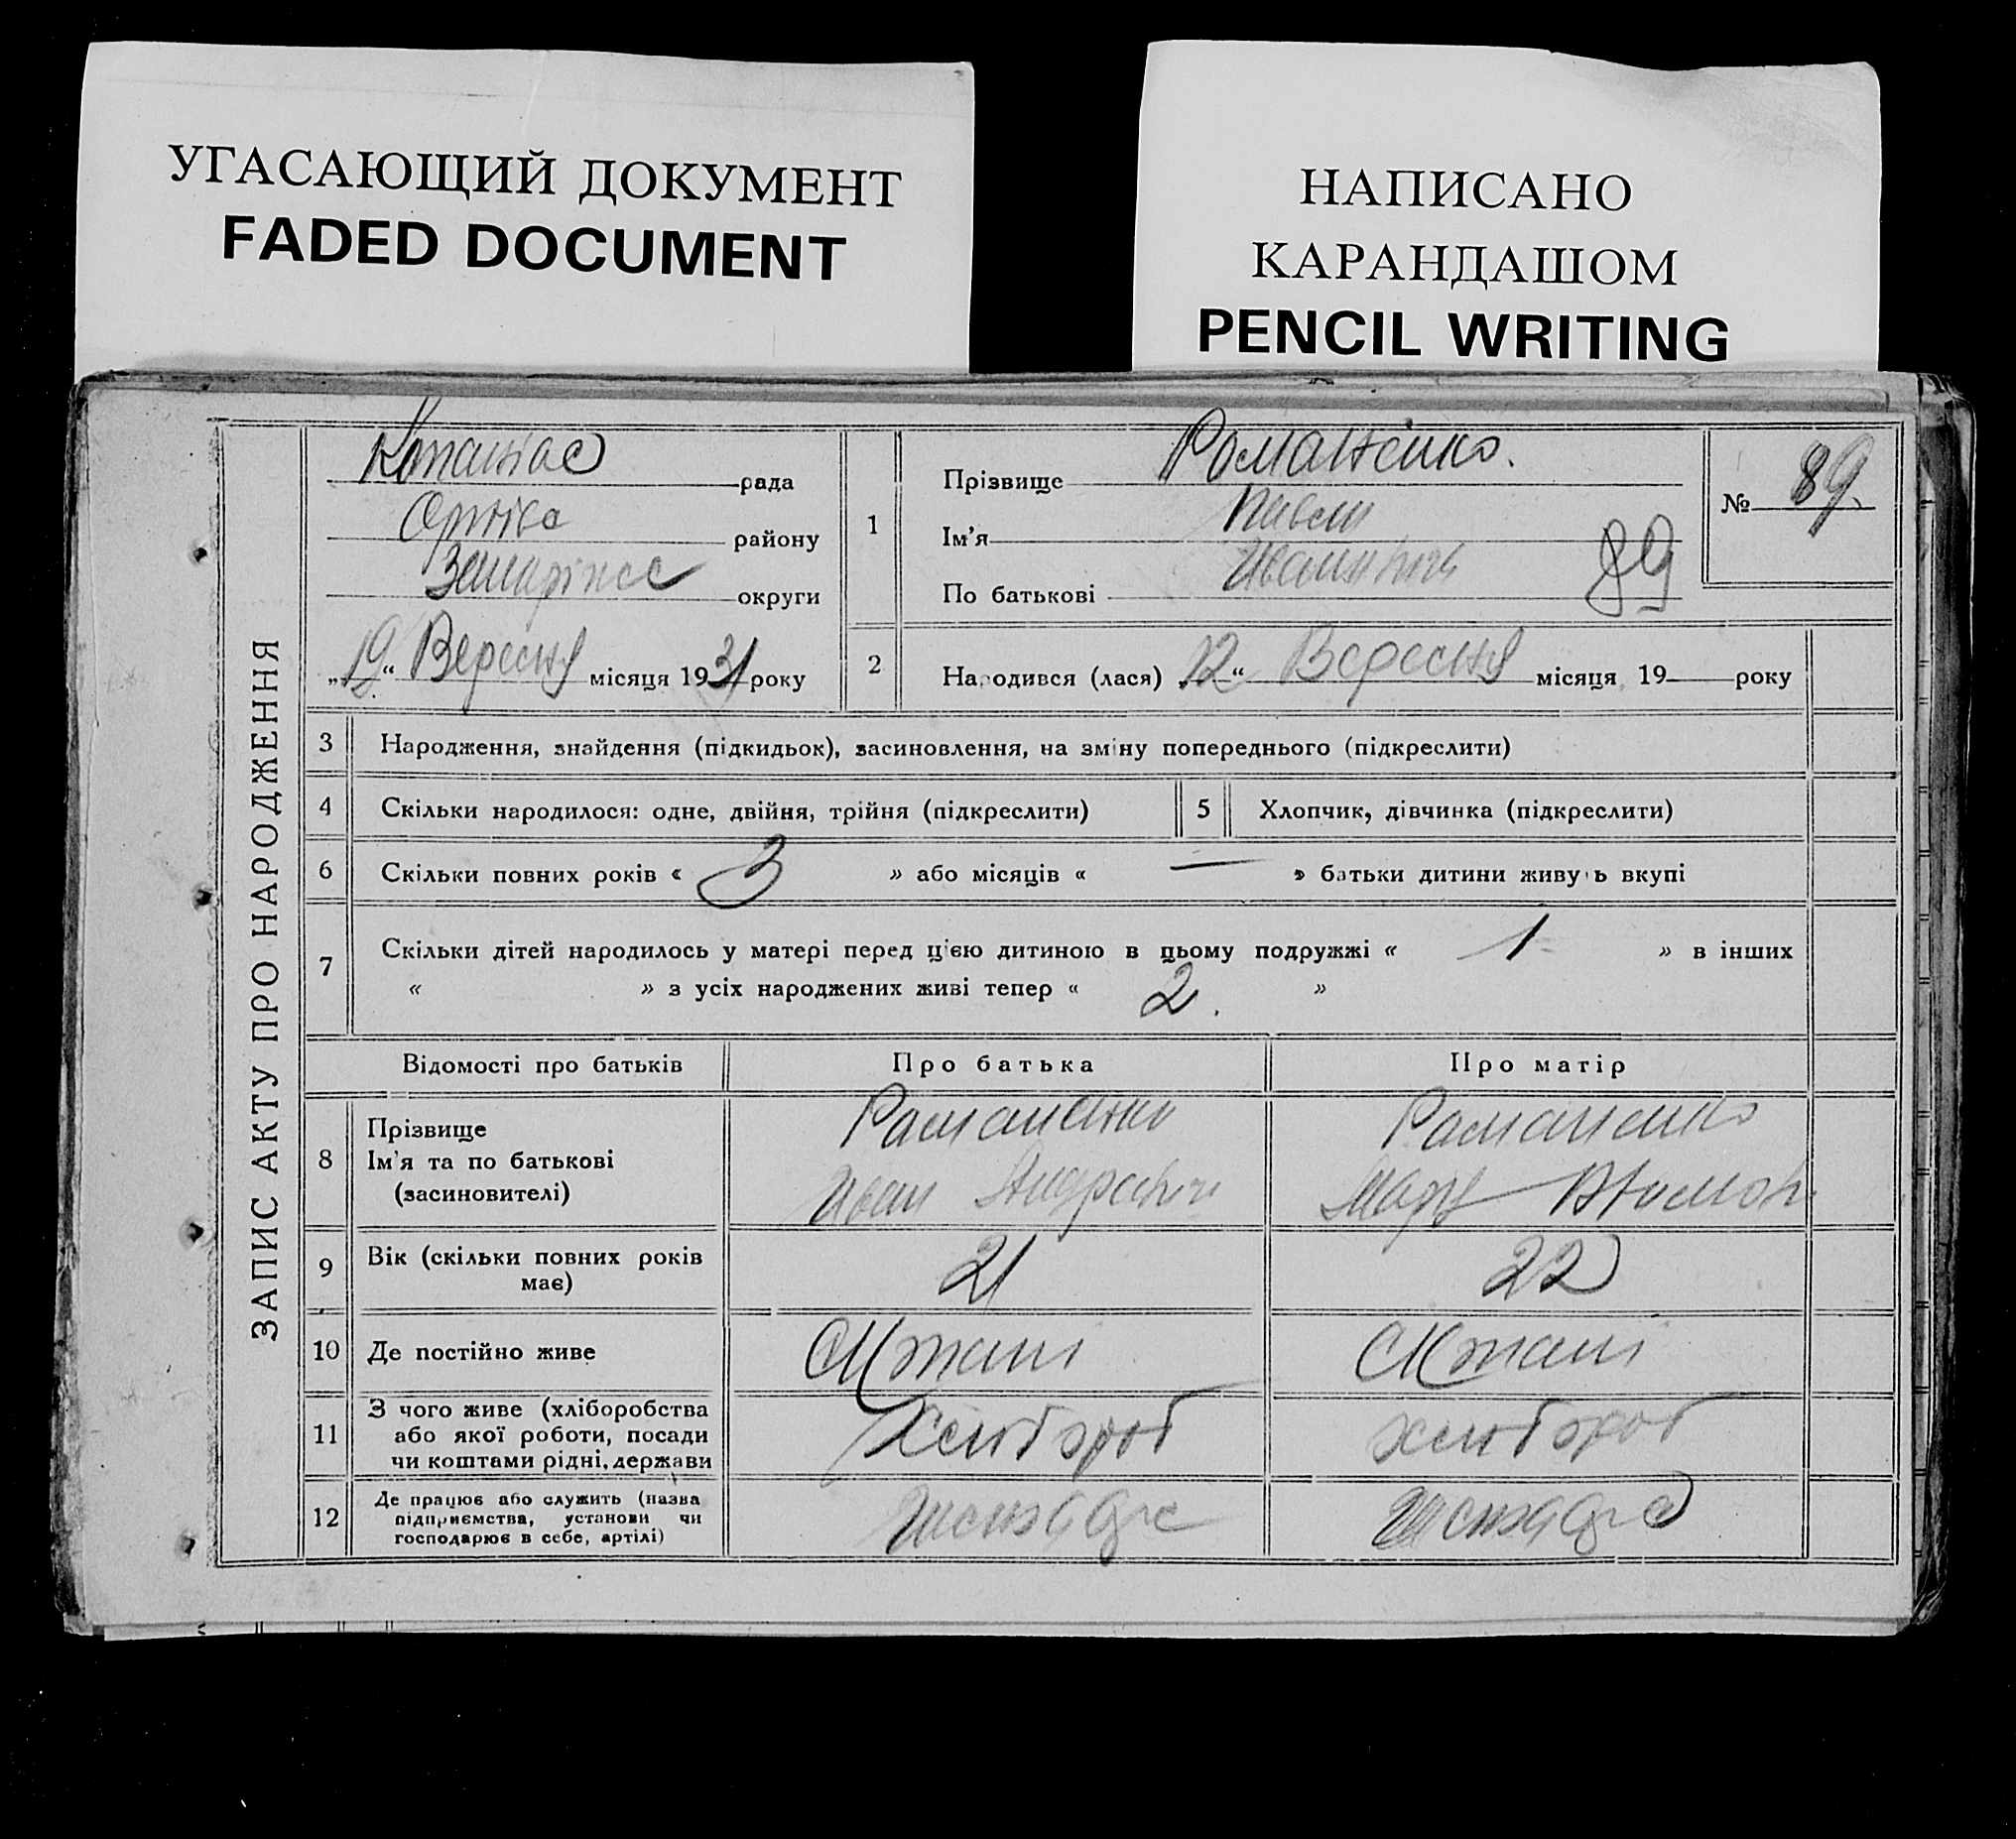 УГАСАЮЩИЙ ДОКУМЕНТ
FADED DOCUMENT
НАПИСАНО
КАРАНДАШОМ
PENCIL WRITING
ЗАПИС АКТУ ПРО НАРОДЖЕННЯ
рада
району
округи
„19“ Вересня місяця 1931 року
1
Прізвище Романенко.
Ім'я Павел
По батькові
89
№ 89.
2
Народився (лася) 12“ Вересня місяця 19 року
3 Народження, знайдення (підкидьок), засиновлення, на зміну попереднього (підкреслити)
4 Скільки народилося: одне, двійня, трійня (підкреслити)
5 Хлопчик, дівчинка (підкреслити)
6 Скільки повних років « 3 » або місяців « — » батьки дитини живуть вкупі
7 Скільки дітей народилось у матері перед цією дитиною в цьому подружжі « 1 » в інших
« » з усіх народжених живі тепер « 2. »
Відомості про батьків Про батька Про матір
8 Прізвище
Ім'я та по батькові
(засиновителі)
Романенко
Иван
Романенко
9 Вік (скільки повних років
має)
21
22
10 Де постійно живе
11 З чого живе (хліборобства
або якої роботи, посади
чи коштами рідні, держави
12 Де працює або служить (назва
підприємства, установи чи
господарює в себе, артілі)